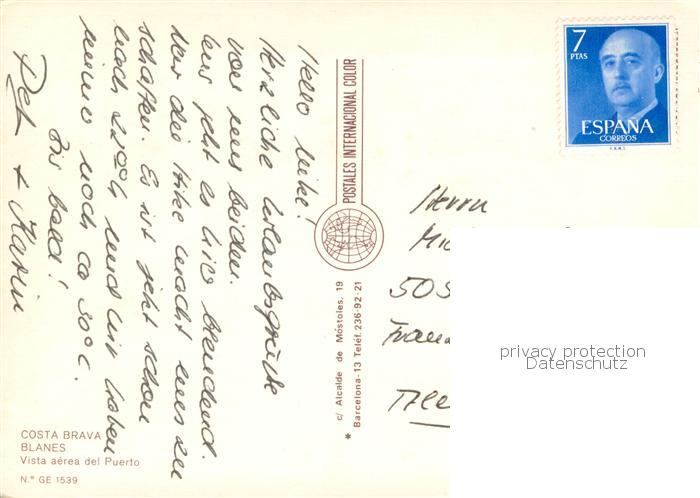 Hello Mike!
Herzliche Urlaubsgrüße
von uns beiden.
uns geht es hier blendend.
Nur die Hitze macht uns zu
schaffen. Es ist jetzt schon
nach 2200h und wir haben
immer noch ca 30°C.
Bis bald!
+ Karin
POSTALES INTERNACIONAL COLOR
c/ Alcalde de Móstoles, 19
* Barcelona-13 Teléf. 236-92-21
7
PTAS
ESPAÑA
CORREOS
Herrn
505
privacy protection
Datenschutz
COSTA BRAVA
BLANES
Vista aérea del Puerto
N.º GE 1539